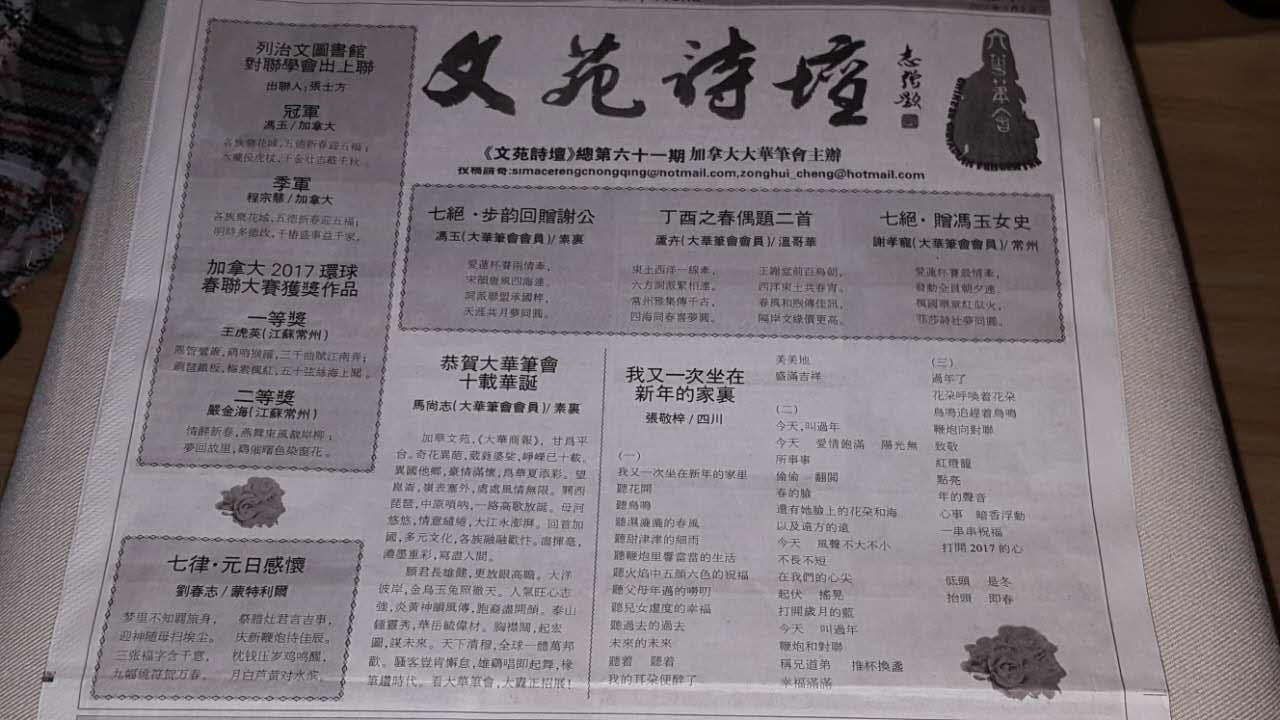 文苑詩壇
志強題
《文苑詩壇》總第六十一期 加拿大大華筆會主辦
zonghui_cheng@hotmail.com
列治文圖書館
對聯學會出上聯
出聯人：張士方
冠軍
馮玉/加拿大
各族樂花城，五德新春迎五福；
季軍
程宗慧/加拿大
各族樂花城，五德新春迎五福；
加拿大2017環球
春聯大賽獲獎作品
一等獎
王虎英(江蘇常州)
二等獎
嚴金海(江蘇常州)
情醉新春，燕舞東風裁岸柳；
夢回故里，鷄催曙色染窗花。
七律·元日感懷
劉春志/蒙特利爾
梦里不知羁旅身，
迎神随母扫埃尘。
三张福字含千意，
祭醮灶君言吉事，
庆新鞭炮待佳辰。
枕钱压岁鸡鸣醒，
七絕·步韵回贈謝公
馮玉(大華筆會會員)/素裏
愛蓮杯賽兩情牽，
宋韻唐風四海連。
天涯共月夢同圓。
丁酉之春偶題二首
蘆卉(大華筆會會員)/溫哥華
東土西洋一線牽，
常州雅集傳千古，
四海同春喜夢圓。
王謝堂前百鳥朝，
西洋東土共春宵。
春風和煦傳佳訊，
隔岸文緣價更高。
七絕·贈馮玉女史
謝孝寵(大華筆會會員)/常州
愛蓮杯賽最情牽，
發動全園朝夕連。
楓國華章紅似火，
菲莎詩社夢同圓。
恭賀大華筆會
十載華誕
馬尚志(大華筆會會員)/素裏
加華文苑，《大華商報》，甘爲平
台。奇花異葩，葳蕤婆娑，崢嶸已十載。
異國他鄉，豪情滿懷，爲華夏添彩。望
崑崙，嶺表塞外，處處風情無限。關西
琵琶，中原嗩吶，一路高歌放誕。母河
悠悠，情意繾綣，大江水澎湃。回首加
國，多元文化，各族融融歡忭。濃揮毫，
濃墨重彩，寫盡人間。
願君長雄健，更放眼高瞻。大洋
彼岸，金烏玉兔照徹天。人氣旺心志
強，炎黃神韻風傳，跑裔盡開顏。泰山
鍾靈秀，華岳毓偉材。胸襟闊，起宏
圖，謀未來。天下清穆，全球一體萬邦
歡。騷客豈肯懈怠，雄鷄唱即起舞，椽
筆繼時代。看大華筆會，大纛正招展！
我又一次坐在
新年的家裏
張敬梓/四川
(一)
我又一次坐在新年的家里
聽花開
聽鳥鳴
聽濕漉漉的春風
聽甜津津的細雨
聽鞭炮里響當當的生活
聽火焰中五顏六色的祝福
聽父母年邁的嘮叨
聽兒女虔度的幸福
聽過去的過去
未來的未來
聽着 聽着
我的耳朵便醉了
美美地
盛滿吉祥
(二)
今天,叫過年
今天 愛情飽滿 陽光無
所事事
偷偷 翻閱
春的臉
還有她臉上的花朵和海
以及遠方的遠
今天 風聲不大不小
不長不短
在我們的心尖
起伏 搖晃
打開歲月的藍
今天 叫過年
鞭炮和對聯
稱兄道弟 推杯換盞
幸福滿滿
(三)
過年了
花朵呼喚着花朵
鳥鳴追趕着鳥鳴
鞭炮向對聯
致敬
紅燈籠
點亮
年的聲音
心事 暗香浮動
一串串祝福
打開2017的心
低頭 是冬
抬頭 即春